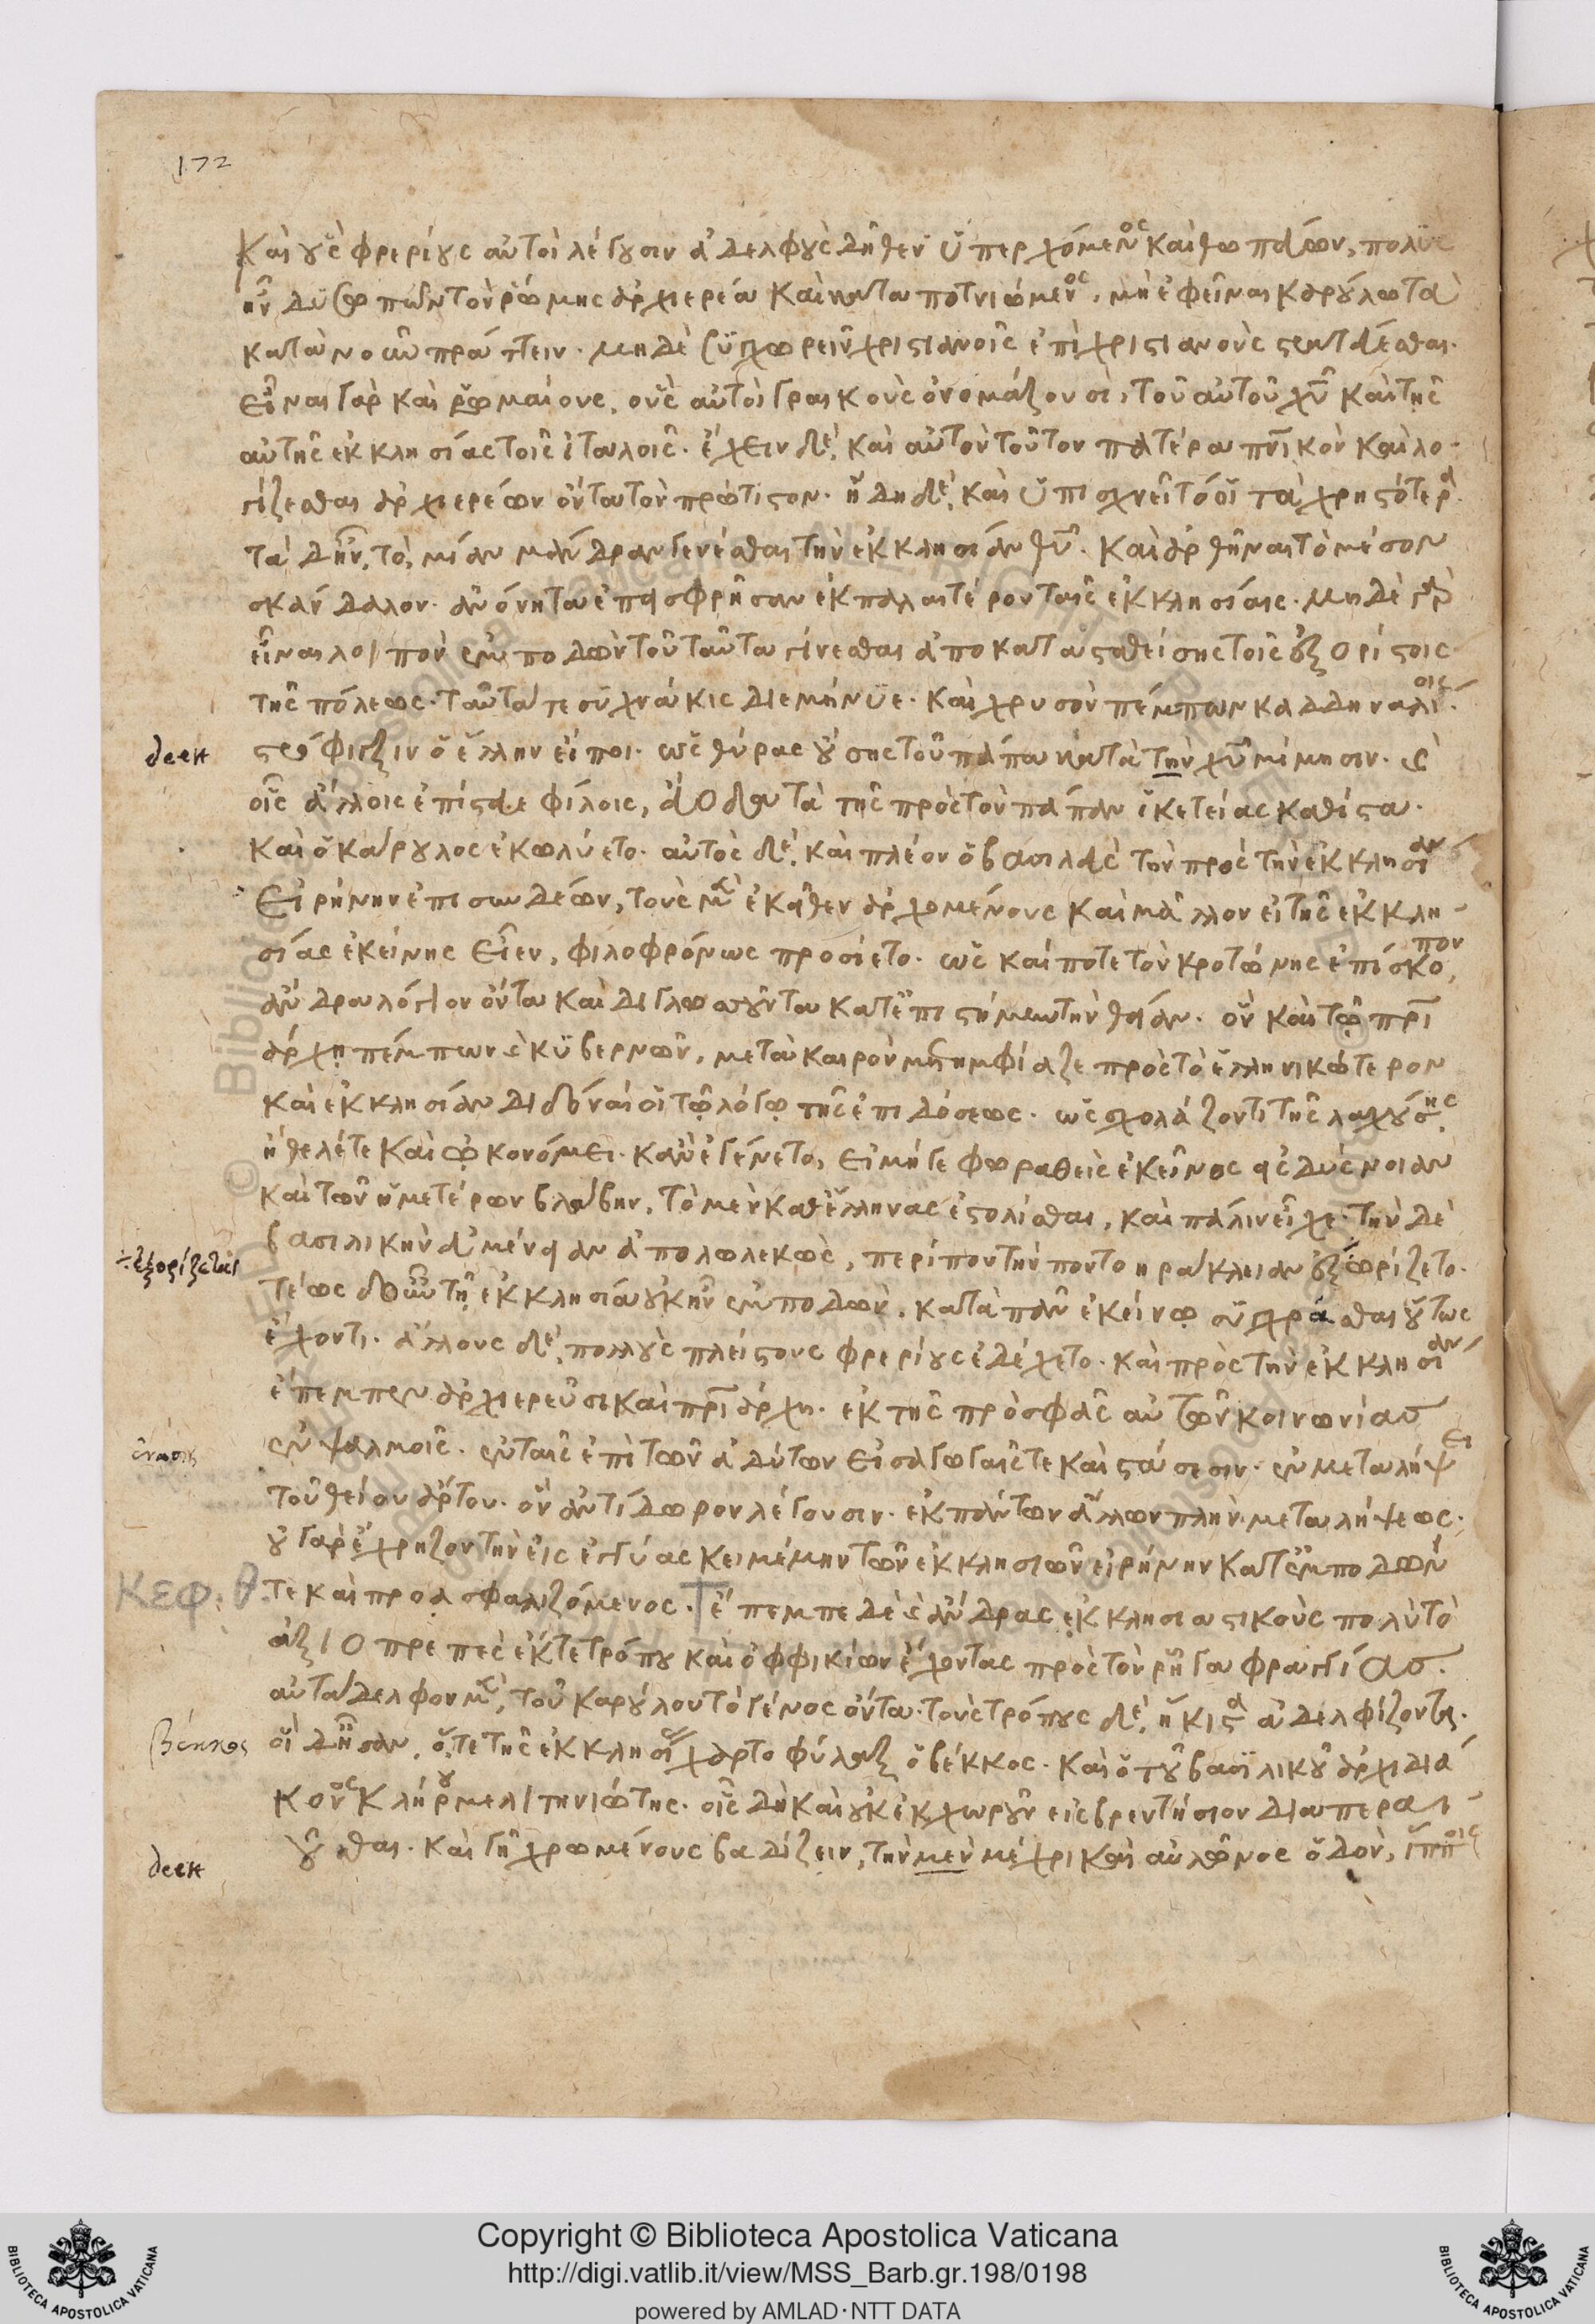 172
καὶ οὓς φρερίους αὐτοὶ λέγουσιν ἀδελφοὺς δῆθεν ὑπερχόμενος καὶ θωπεύων, πολὺς
ἦν δυσωπῶν τὸν ῥώμης ἀρχιερέα καὶ ποτνιώμενος, μὴ ἐφεῖναι καρούλω τὰ
κατὰ νοῦν πράττειν. μηδὲ συγχωρεῖν χριστιανοῖς ἐπὶ χριστιανοὺς
εἶναι γὰρ καὶ ῥωμαίους, οὓς αὐτοὶ γραικοὺς ὀνομάζουσι, τοῦ αὐτοῦ χῦ καὶ τῆς
αὐτῆς ἐκκλησίας τοῖς ἰταλοῖς. ἔχειν δὲ καὶ αὐτὸν τοῦτον πατέρα πνικὸν καὶ λο-
γίζεσθαι ἀρχιερέων ὄντα τὸν πρώτιστον. ἤδη δὲ καὶ ὑπισχνεῖτό οἱ τὰ χρηστότερα
τὰ δ' ἦν, τὸ μίαν μάνδραν γενέσθαι τὴν ἐκκλησίαν θῦ. καὶ ἀρθῆναι τὸ μέσον
σκάνδαλον. ἀνόνητα ἐπεισφρῆσαν ἐκ παλαιτέρου ταῖς ἐκκλησίαις. μηδὲ γὰρ
εἶναι λοιπὸν ἐμποδὼν τοῦ ταῦτα γίνεσθαι ἀποκατασταθείσης τοῖς ἐξ ὁρίστοις
τῆς πόλεως. ταῦτά τε συχνάκις διεμήνυε. καὶ χρυσὸν πέμπων καδδηναλίοις
deest ὁ ἕλλην εἴποι. ὡς θύρας οὔσης τοῦ πάπα κατὰ τὴν χῦ μίμησιν. καὶ
οἷς ἄλλοις ἐπίστευε φίλοις, ἀόδευτα τῆς πρὸς τὸν πάπαν ἱκετείας καθίστα.
καὶ ὁ κάρουλος ἐκωλύετο. αὐτὸς δὲ καὶ πλέον ὁ βασιλεὺς τὴν πρὸς τὴν ἐκκλησίαν
εἰρήνην ἐπισπεύδων, τοὺς μὲν ἐκεῖθεν ἀρχομένους καὶ μᾶλλον εἰ τῆς ἐκκλη-
σίας ἐκείνης εἶεν, φιλοφρόνως προσίετο. ὡς καί ποτε τὸν κροτώνης ἐπίσκοπον,
ἄνδρα λόγιον ὄντα καὶ διγλωσσοῦντα κατ' ἐπιστήμην τὴν θείαν. ὃν καὶ τῷ πρι
άρχῃ πέμπων ἐκυβερνῶν, μετὰ καιρὸν μετημφίαζε πρὸς τὸ ἑλληνικώτερον
καὶ ἐκκλησίαν διδόναι οἱ τῷ λόγῳ τῆς ἐπιδόσεως. ὡς σχολάζοντι τῆς λαχούσης
ἤθελέ τε καὶ ᾠκονόμει. κἂν ἐγένετο, εἰ μή γε φωραθεὶς ἐκεῖνος εἰς δύσνοιαν
καὶ τῶν ἡμετέρων βλάβην, τὸ μὲν καθ' ἕλληνας ἐστολίσθαι, καὶ πάλιν εἶχε. τὴν δὲ
÷ἐξορίζεται βασιλικὴν εὐμένειαν ἀπολωλεκὼς, περί που τὴν ποντοηράκλειαν ἐξωρίζετο.
τέως δ' οὖν τῇ ἐκκλησίᾳ οὐκ ἦν ἐμποδὼν. κατὰ πᾶν ἐκείνῳ συγχρᾶσθαι οὕτως
ἔχοντι. ἄλλους δὲ πολλοὺς πλείστους φρερίους ἐδέχετο. καὶ πρὸς τὴν ἐκκλησίαν
ἔπεμπεν ἀρχιερεῦσι καὶ πριάρχῃ. ἐκ τῆς πρὸς σφᾶς αὐτῶν κοινωνίας
ἕνωσις ἐν ψαλμοῖς. ἐν ταῖς ἐπὶ τῶν ἀδύτων εἰσαγωγαῖς τε καὶ στάσεσιν. ἐν μεταλήψει
τοῦ θείου ἄρτου. ὃν ἀντίδωρον λέγουσιν. ἐκ πάντων ἄλλων πλὴν μεταλήψεως.
οὐ γὰρ ἔχρηζον τὴν εἰς ἐγγύας κειμένην τῶν ἐκκλησιῶν εἰρήνην κατεμποδών
ΚΕΦ: θ. τε καὶ προασφαλιζόμενος. ἔπεμπε δὲ καὶ ἄνδρας ἐκκλησιαστικοὺς πολὺ τὸ
ἀξιοπρεπὲς ἔκ τε τρόπου καὶ ὀφφικίων ἔχοντας πρὸς τὸν ῥῆγα φραγγίας.
αὐτάδελφον μὲν τοῦ καρούλου τὸ γένος ὄντα. τοὺς τρόπους δὲ ἥκιστα ἀδελφίζοντα.
Βέκκος οἱ δ' ἦσαν, ὅ τε τῆς ἐκκλησίας χαρτοφύλαξ ὁ βέκκος. καὶ ὁ τοῦ βασιλικοῦ ἀρχιδιά
κονος κλήρου μελιτηνιώτης. οἷς δὴ καὶ οὐκ ἐκχωροῦν εἰς βρεντήσιον διαπεραι-
deest οῦσθαι. καὶ γῇ χρωμένους βαδίζειν, τὴν μὲν μέχρι καὶ αὐλῶνος ὁδὸν, ἵπποις
Copyright © Biblioteca Apostolica Vaticana
http://digi.vatlib.it/view/MSS_Barb.gr.198/0198
powered by AMLAD·NTT DATA
BIBLIOTECA APOSTOLICA VATICANA
BIBLIOTECA APOSTOLICA VATICANA